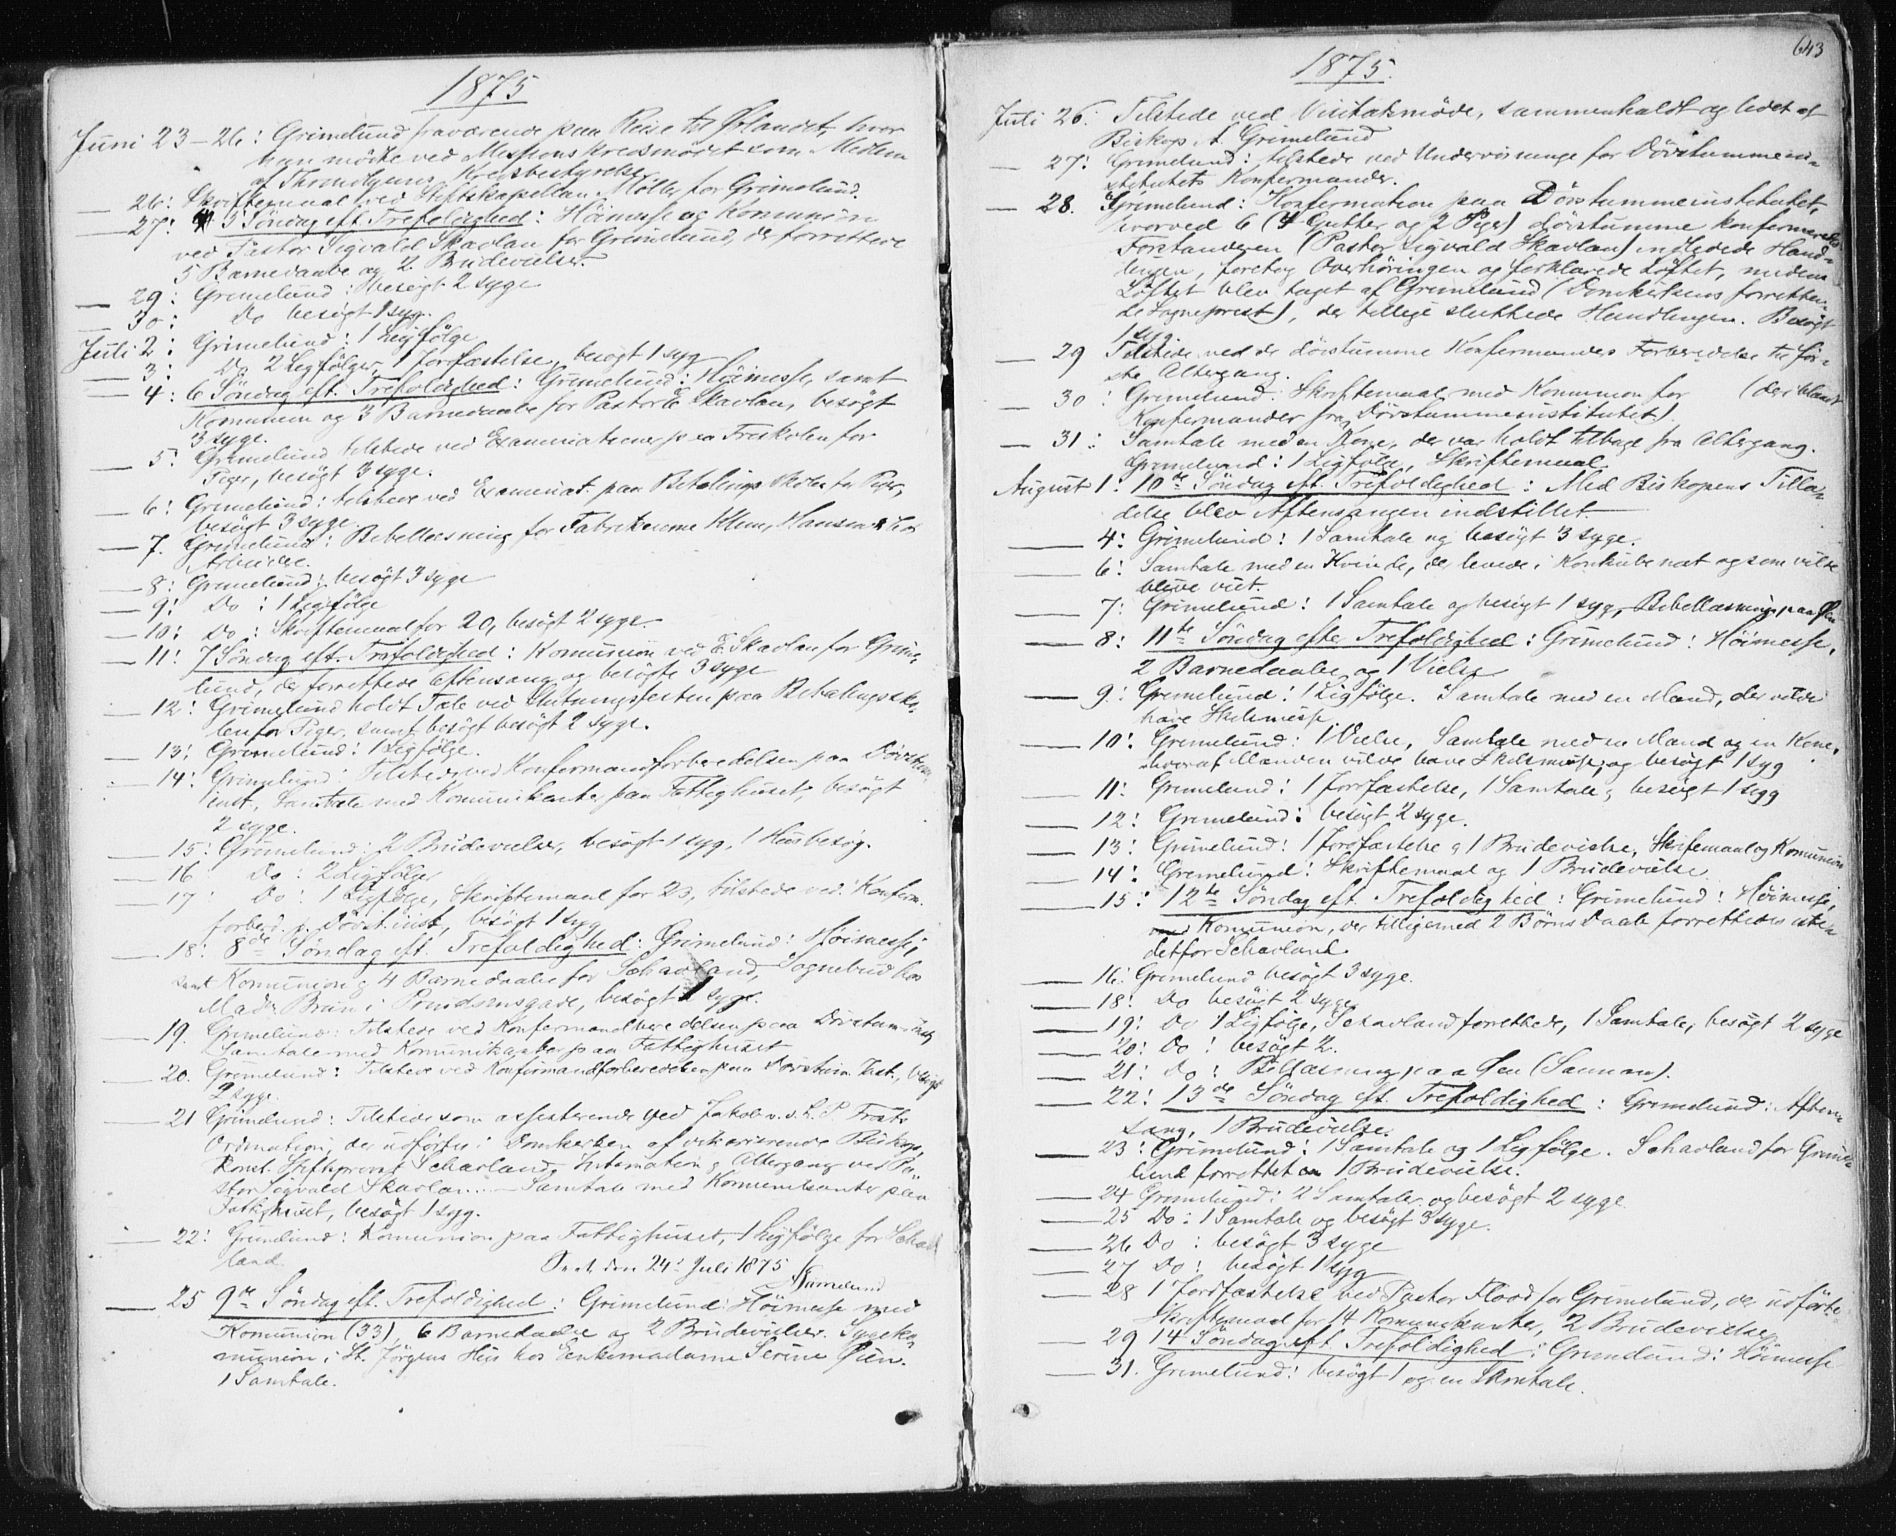 1875
Juni 23-26: Grimelund fraværende paa Reise til Ørlandet, hvor
han mödte ved Missionskredsmödet som Medlem
af Throndhjems Kredsbestyrelse.
— 26: Skriftemaal ved Stiftskapellan Möller for Grimelund.
— 27: 5 Söndag eft. Trefoldighed: Höimesse og Komunion
ved Pastor Sigvald Skavlan for Grimelund, der forrettede
5 Barnedaabe og 2 Brudevielser.
— 29: Grimelund: besögt 2 syge
— 30: Do besögt 1 syg.
Juli 2: Grimelund: 1 Ligfölge
— 3: Do 2 Ligfölger, 1 Jordfæstelse, besögt 1 syg
— 4: 6 Söndag eft. Trefoldighed: Grimelund: Höimesse, samt
Komunion og 3 Barnedaabe for Pastor Skavlan, besögt
3 syge.
— 5: Grimelund tilstede ved Examinationen paa Friskolen for
Piger, besögt 3 syge.
— 6: Grimelund: tilstede ved Examinat. paa Betalingsskolen for Piger,
besögt 3 syge.
— 7. Grimelund: Bibellæsning for Fabrikerne Klem, Hansen &
Arbeidere.
— 8: Grimelund: besögt 3 syge
— 9: Do : 1 Ligfölge
— 10: Do : Skriftemaal for 20, besögt 2 syge.
— 11: 7 Söndag eft. Trefoldighed: Komunion ved Skavlan for Grime-
lund, der forrettede Aftensang og besögte 3 syge
— 12: Grimelund holdt Tale ved Slutningsfesten paa Betalingssko-
len for Piger, samt besögt besögt 2 syge.
— 13: Grimelund: 1 Ligfölge.
— 14: Grimelund: Tilstede ved Konfirmandforberedelsen paa Dövstum.
inst., Samtale med Komunikanter paa Fattighuset, besögt
2 syge.
— 15: Grimelund: 2 Brudevielser, besögt 1 syg, 1 Husbesög.
— 16 Do : 2 Ligfölger
— 17 Do : 1 Ligfölge, Skriftemaal for 23, tilstede ved Konfirm.
forbered. p. Dövst.inst, besögt 1 syg
— 18: 8de Söndag eft. Trefoldighed: Grimelund: Höimesse,
samt Komunion og 4 Barnedaabe for Schavland, Sognebud hos
Mad. Bruun i Prindsensgade, besögt 1 syg.
— 19. Grimelund: Tilstede ved Konfirmandberedelsen paa Dövstum.inst,
Samtale med Komunikanter paa Fattighuset
— 20. Grimelund: Tilstede ved Konfirmandforberedelsen paa Dövstum. Inst., besögt
2 syge.
— 21 Grimelund: Tilstede som assisterende ved Jakob v. d. L. P.
Ordination, der udförtes i Domkirken af Biskop,
Konst. Stiftsprovst Schavland, Intimation og Altergang ved Pa-
stor Sigvald Skavlan. — Samtale med Komunikanter paa
Fattighuset, besögt 1 syg.
— 22: Grimelund: Komunion paa Fattighuset, 1 Ligfölge for Schav-
land.
den 24de Juli 1875
Grimelund
— 25 9de Söndag eft. Trefoldighed: Grimelund: Höimesse med
Komunion (33), 6 Barnedaabe og 2 Brudevielser. Sygeko-
munion i St. Jörgens Hus hos Enkemadame Serine Öien.
1 Samtale.
643
1875.
Juli 26. Tilstede ved Visitatsmöde, sammenkaldt og ledet af
Biskop A Grimelund
— 27: Grimelund: tilstede ved Undervisninge for Dövstummein-
stitutets Konfirmander.
— 28. Grimelund: Konfirmation paa Dövstummeinstitutet,
hvorved 6 (4 Gutter og 2 Piger) dövstumme konfirmeredes
Forstanderen (Pastor Sigvald Skavlan) indledede Hand-
lingen, foretog Overhöringen og forklarede Löftet, medens
Löftet blev taget af Grimelund (Domkirkens forretten-
de Sogneprest), der tillige sluttede Handlingen. Besögt
1 syg.
— 29 Tilstede ved de dövstumme Konfirmanders Forberedelse til för-
ste Altergang.
— 30 : Grimelund Skriftemaal med Komunion for (deriblandt
Konfirmander fra Dövstummeinstitutet).
— 31: Samtale med en Kone, der var holdt tilbage fra Altergang.
Grimelund: 1 Ligfölge, Skriftemaal
August 1: 10de Söndag eft. Trefoldighed: Med Biskopens Tilla-
delse blev Aftensangen indstillet
— 4: Grimelund: 1 Samtale og besögt 3 syge.
— 6: Samtale med en Kvinde, der levede i Konkubinat og som vilde
blive viet.
— 7: Grimelund: 1 Samtale og besögt 1 syg, Bibellæsning paa Öen
— 8: 11te Söndag efter Trefoldighed: Grimelund: Höimesse,
2 Barnedaabe og 1 Vielse
— 9: Grimelund: 1 Ligfölge. Samtale med en Mand, der vilde
have Skilsmisse
— 10: Grimelund: 1 Vielse, Samtale med en Mand og en Kone,
hvoraf Manden vilde have Skilsmisse, og besögt 1 syg
— 11: Grimelund: 1 Jordfæstelse, 1 Samtale, besögt 1 syg
— 12: Grimelund: besögt 2 syge.
— 13: Grimelund: 1 Jordfæstelse og 1 Brudevielse, Skriftemaal og Komunion
— 14: Grimelund: Skriftemaal og 1 Brudevielse
— 15: 12te Söndag eft. Trefoldighed: Grimelund: Höimesse,
Komunion, der tilligemed 2 Börns Daab forrettedes iste-
detfor Schavland
— 16: Grimelund besögt 3 syge.
— 18: Do besögt 2 syge
— 19: Do 1 Ligfölge, Schavland forrettede, 1 Samtale, besögt 2 syge
— 20: Do : besögt 2.
— 21: Do : Bibellæsning paa Öen (Sannan).
— 22: 13de Söndag eft. Trefoldighed: Grimelund: Aften-
sang, 1 Brudevielse.
— 23: Grimelund: 1 Samtale og 1 Ligfölge. Schavland for Grime-
lund forrettet en 1 Brudevielse.
— 24 Grimelund: 2 Samtaler og besögt 2 syge
— 25 Do : 1 Samtale og besögt 3 syge.
— 26 Do : besögt 3 syge
— 27 Do : besögt 1 syg
— 28 1 Jordfæstelse ved Pastor Flood for Grimelund, der udförte
Skriftemaal for 14 Komunikanter, 2 Brudevielser
— 29 14 Söndag eft Trefoldighed: Grimelund: Höimesse
— 31. Grimelund: besögt 1 og en Samtale.